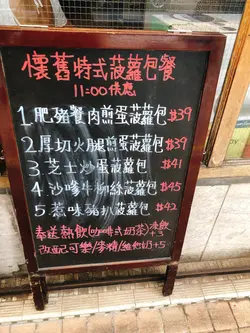 懷舊特式菠蘿包餐
11:00供應
1.肥豬餐肉煎蛋菠蘿包 $39
2.厚切火腿煎蛋菠蘿包 $39
3.芝士炒蛋菠蘿包 $41
4.沙嗲牛柳絲菠蘿包 $45
5.惹味豬扒菠蘿包 $42
奉送熱飲(港式奶茶)凍飲+5
改配可樂/麥精/維他奶+5